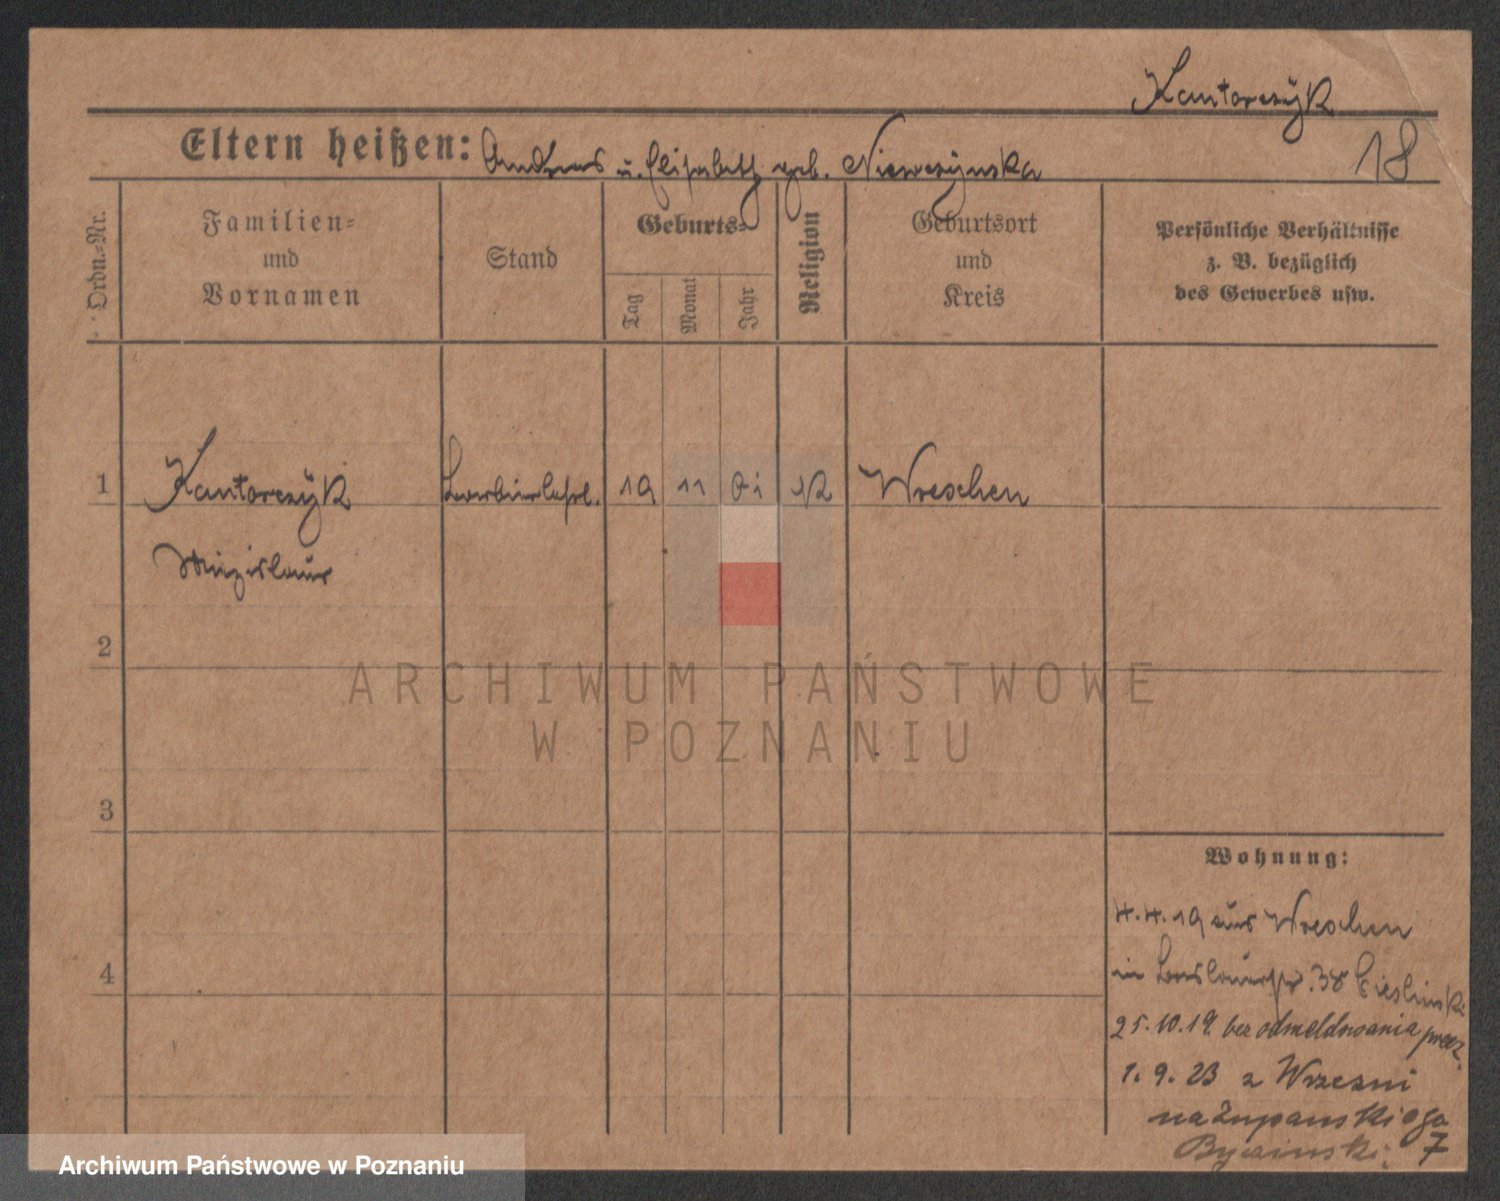 Kantorczyk
Eltern heißen: Andreas u. Elisabeth geb. Niewczynska
18
Ordn.-Nr.
Familien-
und
Vornamen
Stand
Geburts-
Tag
Monat
Jahr
Religion
Geburtsort
und
Kreis
Persönliche Verhältnisse
z. B. bezüglich
des Gewerbes usw.
1 Kantorczyk Barbierlehrl. 19 11 01 K Wreschen
Miezislaus
2
3
4
ARCHIWUM PAŃSTWOWE
W POZNANIU
Wohnung:
4.4.19 aus Wreschen
in 38 Cieslinski
25.10.19. bez odmeldowania precz.
1.9.23 z Wrzesni
na Zupanskiego
7
Archiwum Państwowe w Poznaniu